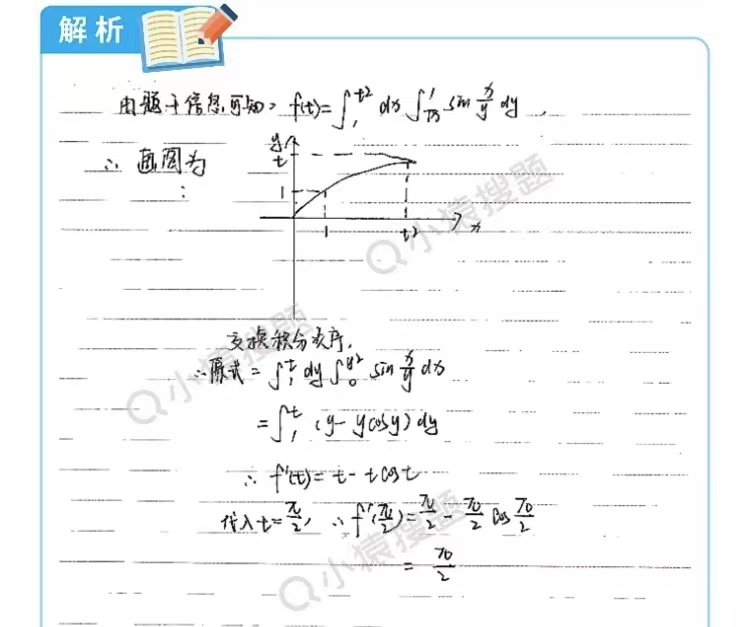 解析
由题干信息可知, f(t)=∫₁^{t²} dx ∫_{√x}^1 sin x/y dy,
∴ 画图为
:
y
t
1
1
t²
x
小猿搜题
交换积分次序,
∴原式 = ∫₁^t dy ∫₀^{y²} sin x/y dx
小猿搜题
= ∫₁^t (y - ycosy) dy
∴ f'(t) = t - t cos t
代入 t = π/2, ∴ f'(π/2) = π/2 - π/2 cos π/2
= π/2
小猿搜题